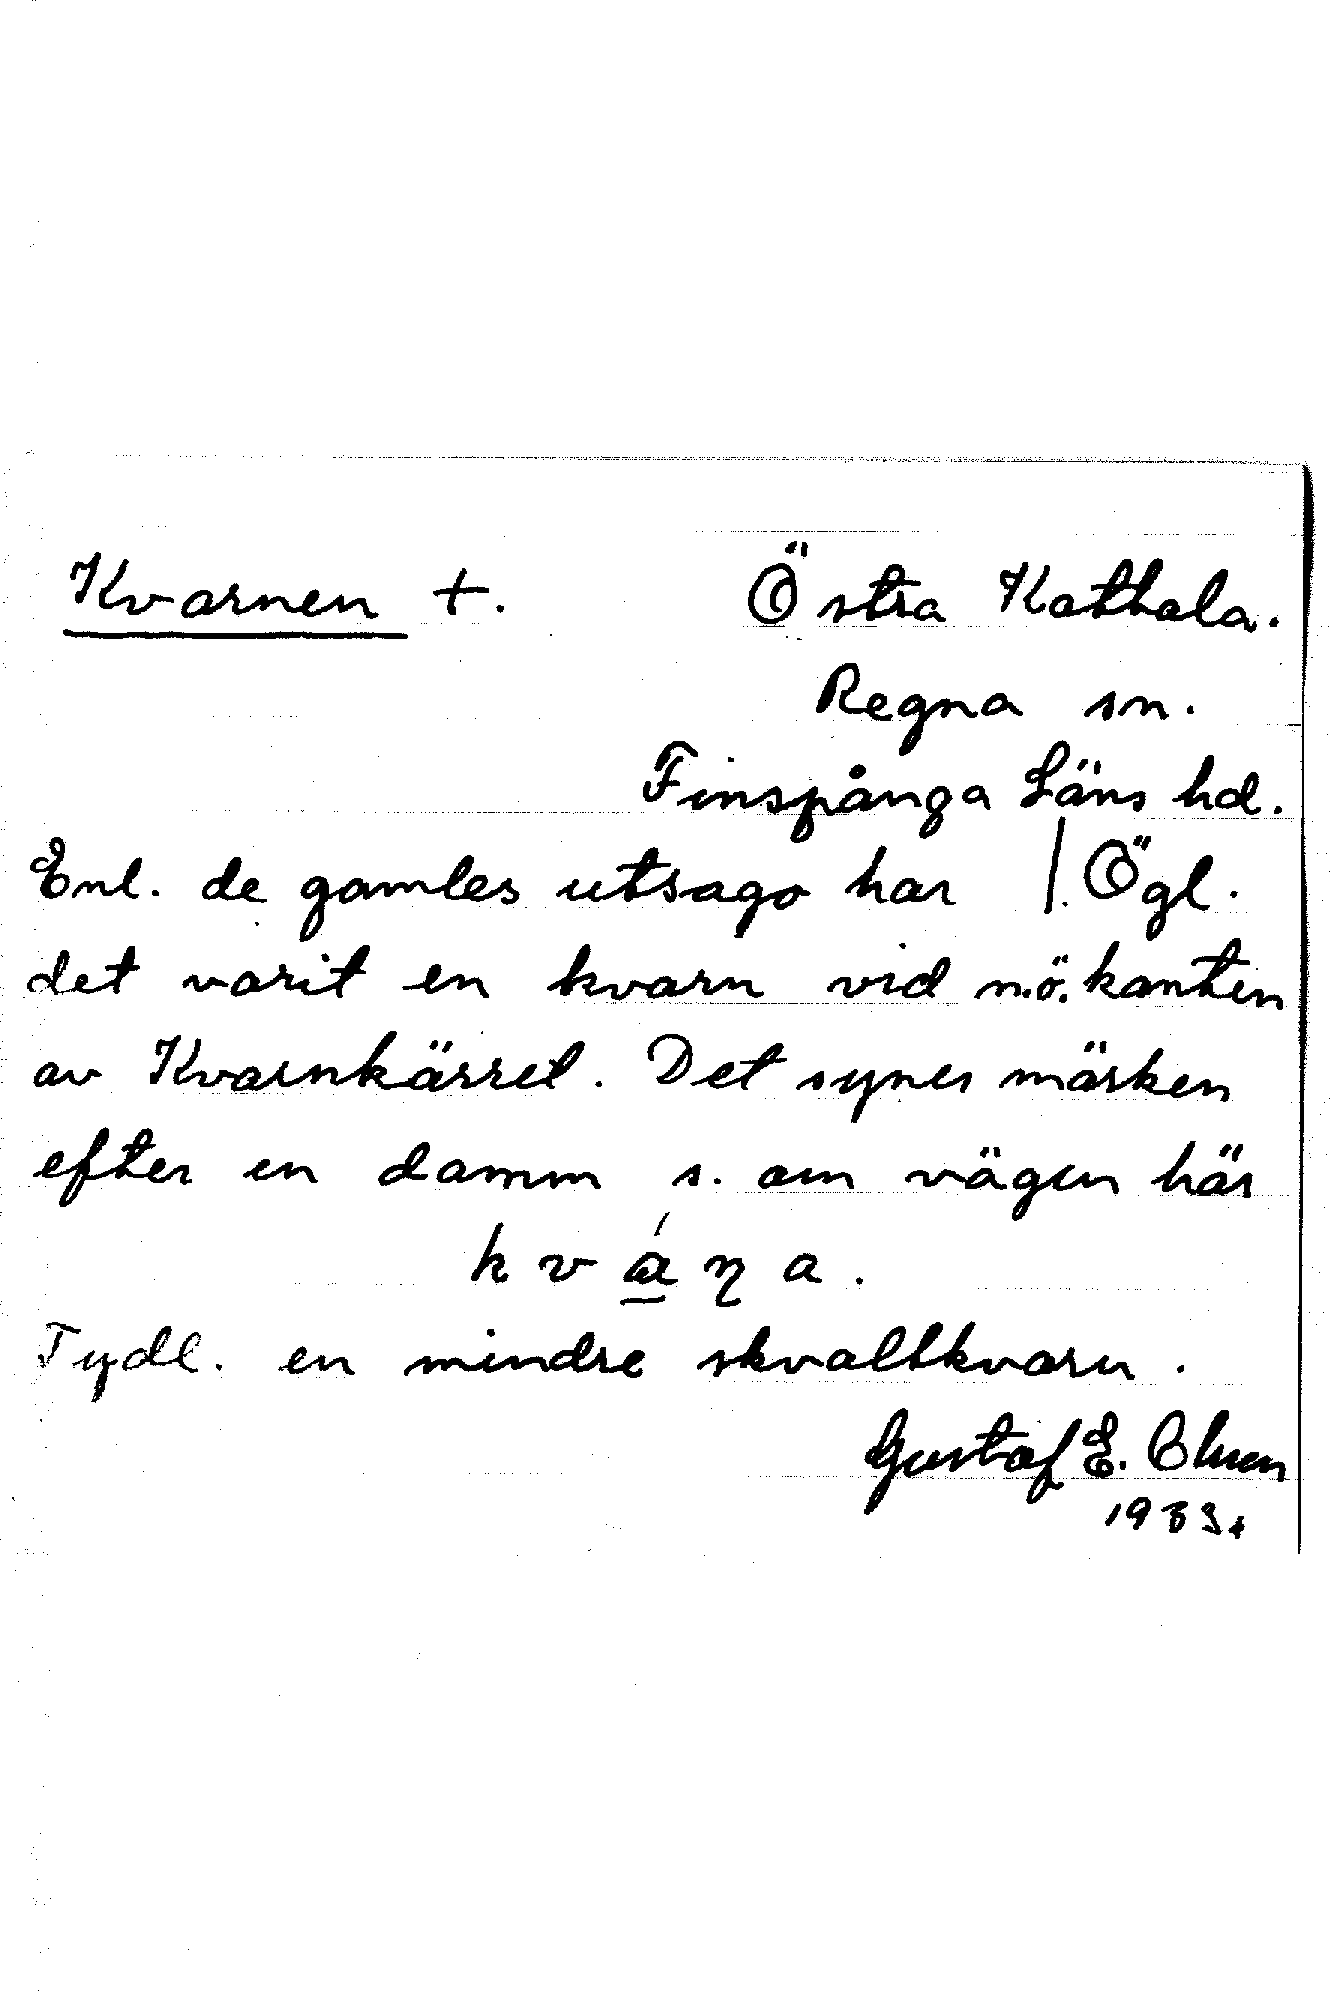 Kvarnen +. Östra Kathala.
Regna sn.
Finspånga Läns hd.
Enl. de gamles utsago har | Ögl.
det varit en kvarn vid n.ö. kanten
av Kvarnkärret. Det synes märken
efter en damm s. om vägen här
kvája.
Tydl. en mindre skvaltkvarn.
Gustaf E.
1933.